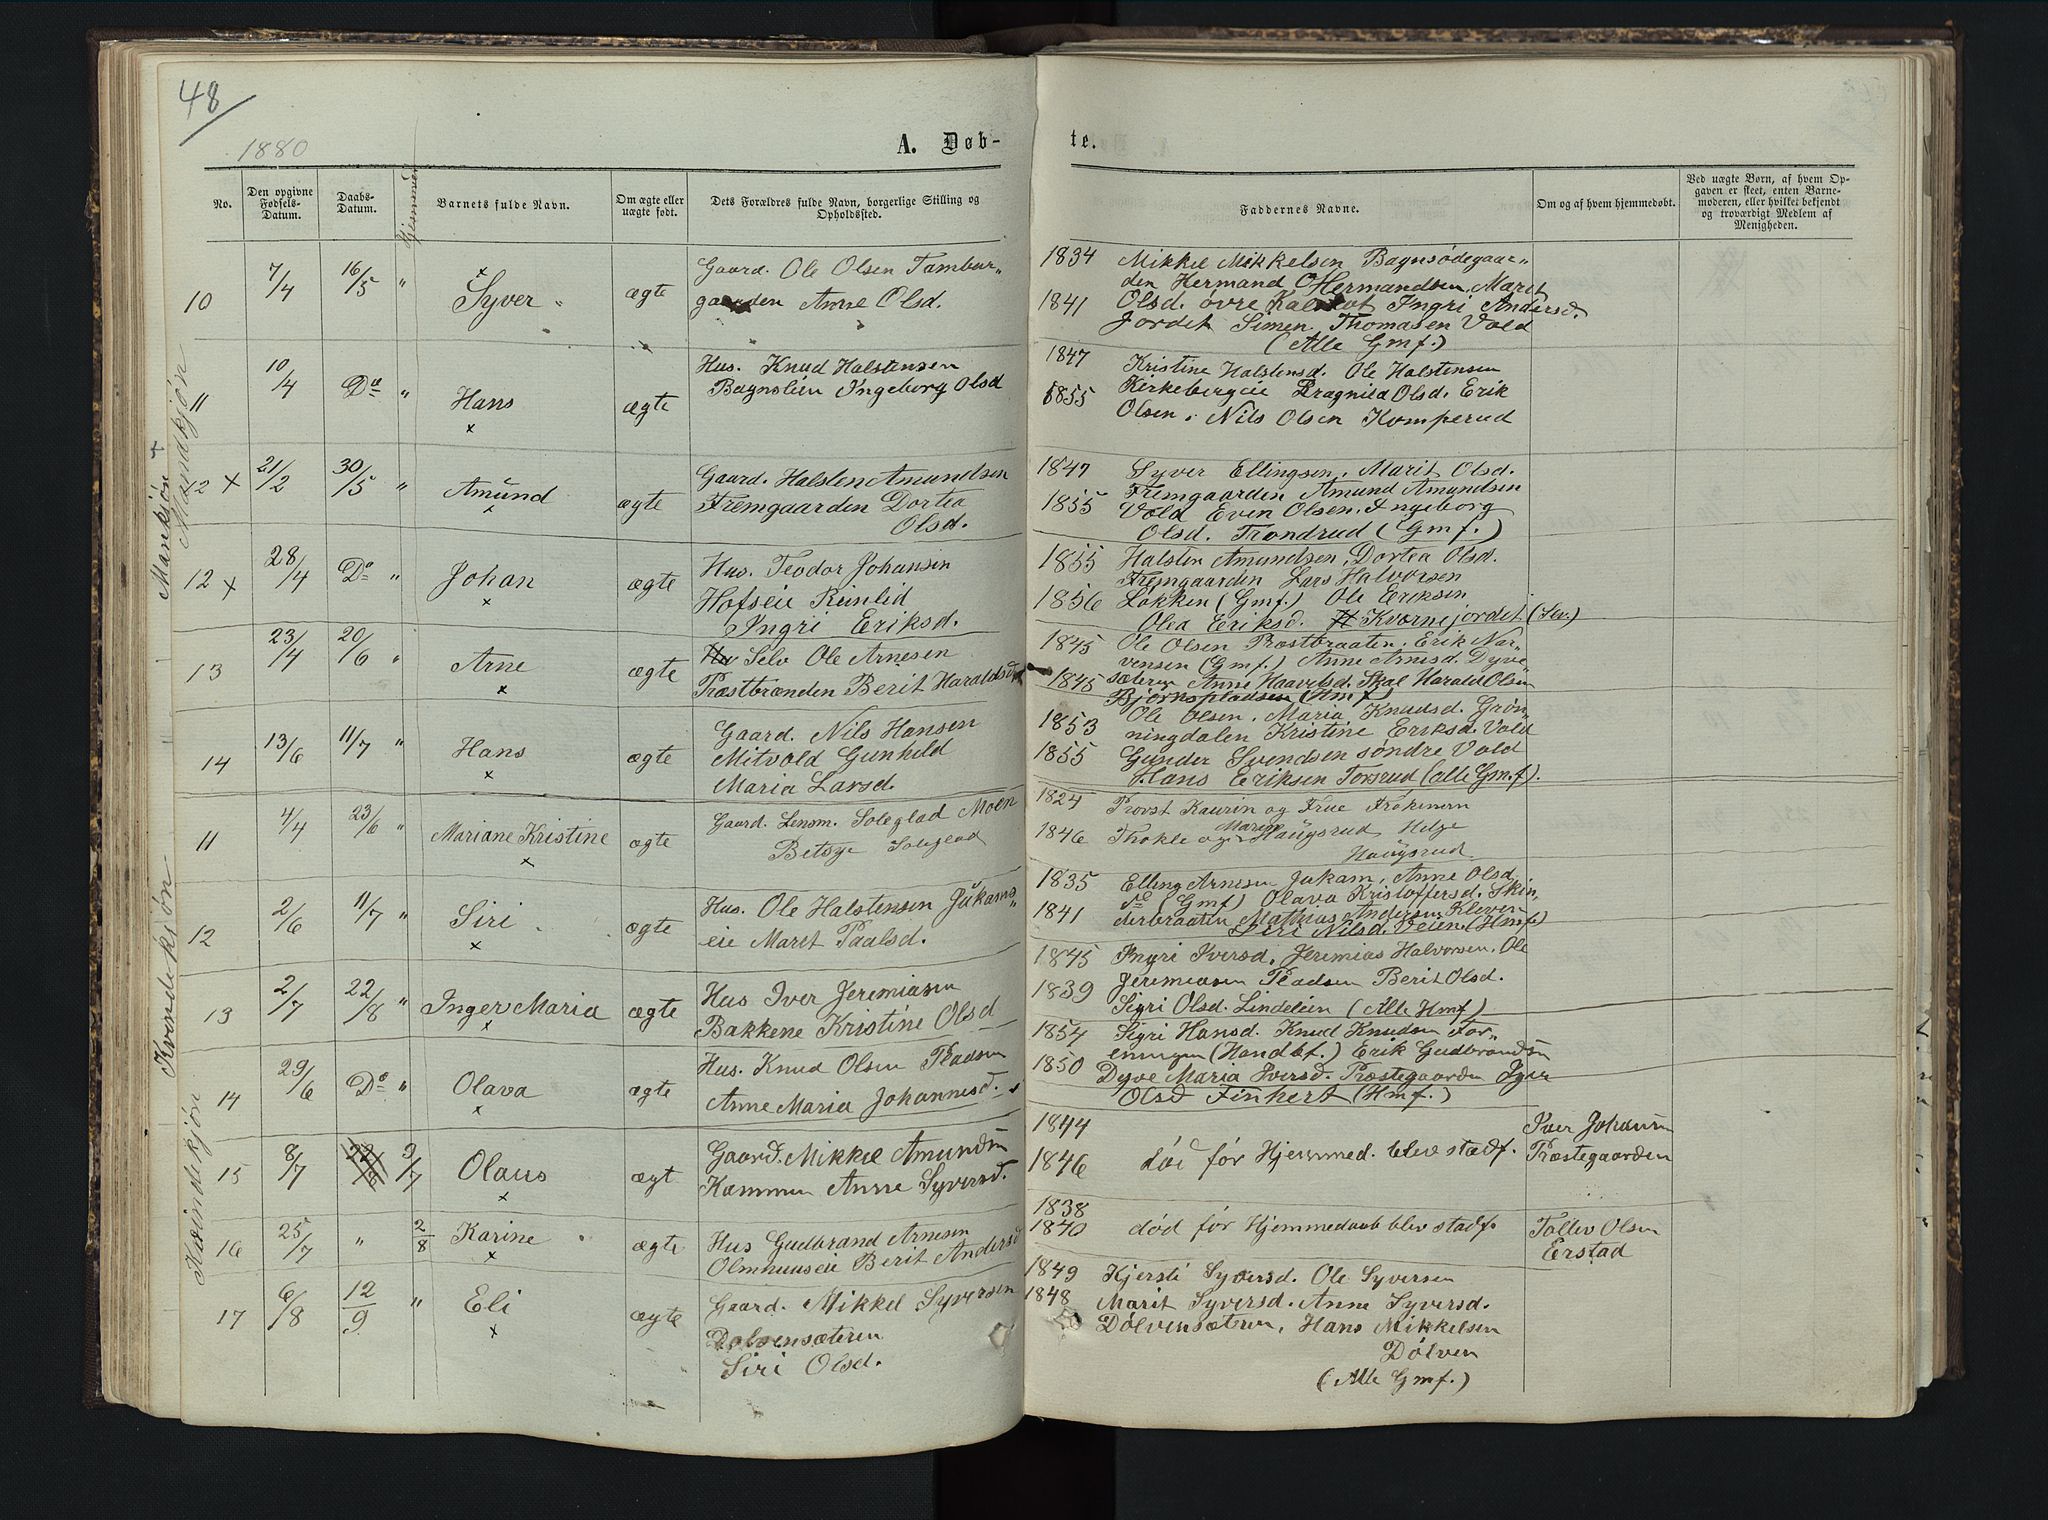 48
1880
A. Døb-
te.
No.
Den opgivne Fødsels-Datum.
Daabs-Datum.
Hjemmed.
Barnets fulde Navn.
Om ægte eller uægte født.
Dets Forældres fulde Navn, borgerlige Stilling og Opholdssted.
Faddernes Navne.
Om og af hvem hjemmedøbt.
Ved uægte Børn, af hvem Opgaven er skeet, enten Barnemoderen, eller hvilket bekjendt og troværdigt Medlem af Menigheden.
Mandkjøn
Mankjøn
10 7/4 16/5 " Syver ægte
Gaard. Ole Olsen Tambur-
gaarden Anne Olsd.
1834 Mikkel Mikkelsen Bagnsødegaar-
den Hermand O Hermandsen, Marit
1841 Olsd. øvre Ingri Andersd.
Jordet Simen Thomasen Vold
(Alle Gmf.)
11 10/4 Do " Hans ægte
Hus. Knud Halstensen
Bagnslien Ingeborg Olsd
1847 Kristine Halstensd. Ole Halstensen
1855 Kirkebergeie Olsd. Erik
Olsen. Nils Olsen Komperud
12 x 21/2 30/5 " Amund ægte
Gaard. Halsten Amundsen
Fremgaarden Dortea
Olsd.
1847 Syver Ellingsen, Marit Olsd.
Fremgaarden Amund Amundsen
1855 Vold Even Olsen. Ingeborg
Olsd. Trondrud (Gmf.)
12 x 28/4 Do " Johan ægte
Hus. Teodor Johansen
Hofseie Runlid
Ingri Eriksd.
1855 Halsten Amundsen, Dortea Olsd.
Fremgaarden Lars Halvorsen
1856 Løkken (Gmf.) Ole Eriksen
Olea Eriksd. Kvernejordet (Sv.)
13 23/4 20/6 " Arne ægte
Selv Ole Arnesen
Præstbrænden Berit Haraldsd
1845 Ole Olsen Præstbraaten. Erik Nar-
vensen (Gmf.) Anne Arnesd. Dyve-
1845 sæteren Anne Haavelsd. Skal Harald Olsen
Bjørnspladsen (Hmf)
14 13/6 11/7 " Hans ægte
Gaard. Nils Hansen
Mitvold Gunhild
Maria Larsd.
1853 Ole Olsen. Maria Knudsd. Grøn-
ningdalen Kristine Eriksd. Vold
1855 Gunder Svendsen søndre Vold
Hans Eriksen Torsrud (alle Gmf).
Kvindekjøn
Kvindekjøn
11 4/4 23/6 " Mariane Kristine ægte
Gaard. Lensm. Soleglad Moen
Betsye Soleglad
1824 Provst Kaurin og Frue Frøknern
1846 Thokle og Maren Haugsrud Helge
Haugsrud
12 2/6 11/7 " Siri ægte
Hus. Ole Halstensen Jukams-
eie Marit Paalsd.
1835 Elling Arnesen Jukam, Anne Olsd.
(Gmf) Olava Kristoffersd. Skin-
1841 derbraaten Mathias Andersen Kleven
Siri Nilsd. Veien (Hmf)
13 2/7 22/8 " Inger Maria ægte
Hus Iver Jeremiasen
Bakkene Kristine Olsd
1845 Ingri Iversd. Jeremias Halvorsen, Ole
Jeremiasen Pladsen Berit Olsd.
1839 Sigri Olsd. Lindelien (Alle Hmf)
14 29/6 Do " Olava ægte
Hus. Knud Olsen Pladsen
Anne Maria Johannesd.
1854 Sigri Hansd. Knud Knudsen For-
eningen (Handbf.) Erik Gudbrandsen
1850 Dyve Maria Iversd. Præstegaarden
Olsd Finhert (Hmf.)
15 8/7 9/7 Olaus ægt
Gaard. Mikkel Amundsen
Kammen Anne Syversd.
1844
1846 død før Hjemmed. blev stadf.
Iver Johansen
Præstegaarden
16 25/7 " 2/8 Karine ægte
Hus Gudbrand Arnesen
Olmhuuseie Berit Andersd
1838
1840 død før Hjemmedaab blev stadf.
Tollev Olsen
Erstad
17 6/8 12/9 " Eli ægte
Gaard. Mikkel Syversen
Dølvensæteren
Siri Olsd.
1849 Kjersti Syversd. Ole Syversen
1848 Marit Syversd. Anne Syversd.
Dølvensæteren, Hans Mikkelsen
Dølven
(Alle Gmf.)